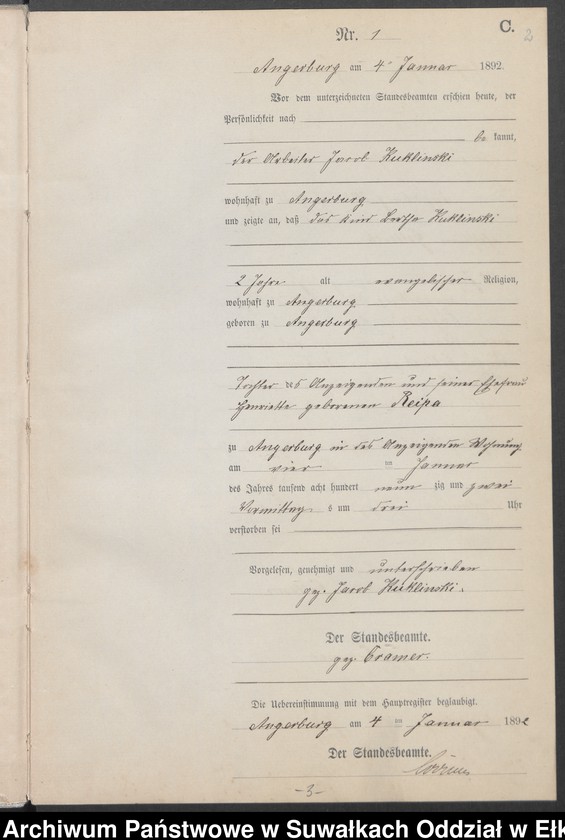 C.
2
Nr. 1
Angerburg am 4ten Januar 1892.
Vor dem unterzeichneten Standesbeamten erschien heute, der
Persönlichkeit nach
be kannt,
der Arbeiter Jacob Kuklinski
wohnhaft zu Angerburg
und zeigte an, daß das Kind Bertha Kuklinski
2 Jahre alt evangelischer Religion,
wohnhaft zu Angerburg
geboren zu Angerburg
Tochter des Anzeigenden und seiner Ehefrau
Henriette geborenen Reipa
zu Angerburg in des Anzeigenden Wohnung
am vier ten Januar
des Jahres tausend acht hundert neun zig und zwei
Vormittag s um drei Uhr
verstorben sei
Vorgelesen, genehmigt und unterschrieben
gez. Jacob Kuklinski.
Der Standesbeamte.
gez. Cramer.
Die Uebereinstimmung mit dem Hauptregister beglaubigt.
Angerburg am 4 ten Januar 1892
Der Standesbeamte.
-3-
Archiwum Państwowe w Suwałkach Oddział w Ełk